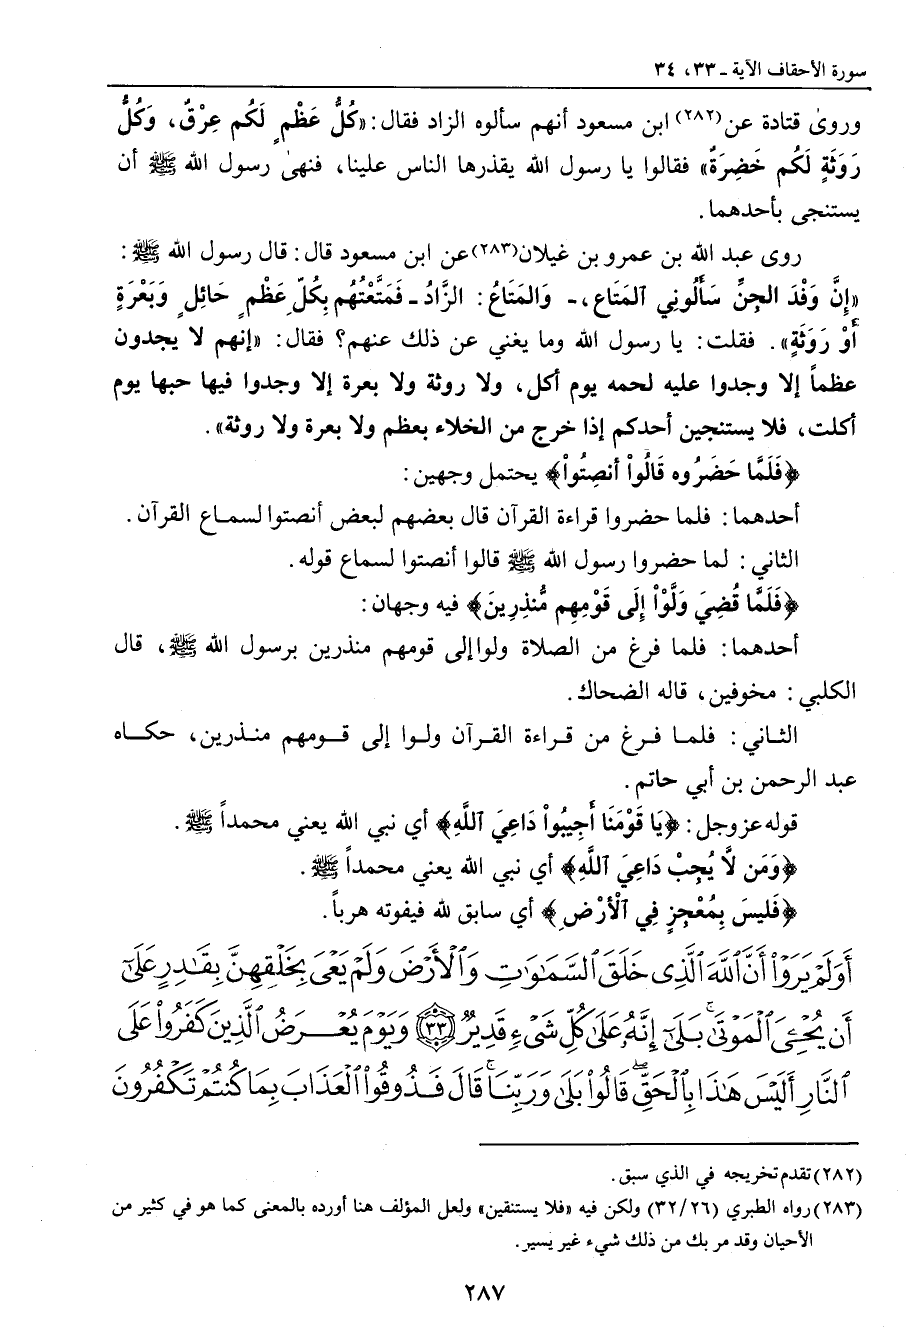 سورة الأحقاف الآية ـ ٣٣، ٣٤
وروىٰ قتادة عن(٢٨٢) ابن مسعود أنهم سألوه الزاد فقال: «كُلُّ عَظْمٍ لَكُم عِرْقٌ، وَكُلُّ
رَوَثَةٍ لَكُم خَضِرَةٌ» فقالوا يا رسول الله يقذرها الناس علينا، فنهىٰ رسول الله ﷺ أن
يستنجى بأحدهما.
روى عبد الله بن عمرو بن غيلان(٢٨٣) عن ابن مسعود قال: قال رسول الله ﷺ:
«إِنَّ وَفْدَ الجِنِّ سَأَلُونِي ٱلمَتاع،ِ ـ وَالمَتَاعُ: الزَّادُ ـ فَمَتَّعْتُهُم بِكُلِّ عَظْمٍ حَائِلٍ وَبَعْرَةٍ
أَوْ رَوَثَةٍ». فقلت: يا رسول الله وما يغني عن ذلك عنهم؟ فقال: «إنهم لا يجدون
عظماً إلا وجدوا عليه لحمه يوم أكل، ولا روثة ولا بعرة إلا وجدوا فيها حبها يوم
أكلت، فلا يستنجين أحدكم إذا خرج من الخلاء بعظم ولا بعرة ولا روثة».
﴿فَلَمَّا حَضَرُوه قَالُواْ أَنصِتُواْ﴾ يحتمل وجهين:
أحدهما: فلما حضروا قراءة القرآن قال بعضهم لبعض أنصتوا لسماع القرآن.
الثاني: لما حضروا رسول الله ﷺ قالوا أنصتوا لسماع قوله.
﴿فَلَمَّا قُضِيَ وَلَّوْاْ إِلَى قَوْمِهِم مُّنذِرِينَ﴾ فيه وجهان:
أحدهما: فلما فرغ من الصلاة ولوا إلى قومهم منذرين برسول الله ﷺ، قال
الكلبي: مخوفين، قاله الضحاك.
الثاني: فلما فرغ من قراءة القرآن ولوا إلى قومهم منذرين، حكاه
عبد الرحمن بن أبي حاتم.
قوله عز وجل: ﴿يَا قَوْمَنَا أَجِيبُواْ دَاعِيَ ٱللَّهِ﴾ أي نبي الله يعني محمداً ﷺ.
﴿وَمَن لاَّ يُجِبْ دَاعِيَ ٱللَّهِ﴾ أي نبي الله يعني محمداً ﷺ.
﴿فَلَيسَ بِمُعْجِزٍ فِي ٱلْأَرْضِ﴾ أي سابق لله فيفوته هرباً.
أَوَلَمْ يَرَوْاْ أَنَّ ٱللَّهَ ٱلَّذِى خَلَقَ ٱلسَّمَٰوَٰتِ وَٱلْأَرْضَ وَلَمْ يَعْىَ بِخَلْقِهِنَّ بِقَٰدِرٍ عَلَىٰٓ
أَن يُحْـِۧىَ ٱلْمَوْتَىٰۚ بَلَىٰٓ إِنَّهُۥ عَلَىٰ كُلِّ شَىْءٍ قَدِيرٌ ﴿٣٣﴾ وَيَوْمَ يُعْرَضُ ٱلَّذِينَ كَفَرُواْ عَلَى
ٱلنَّارِ أَلَيْسَ هَٰذَا بِٱلْحَقِّۖ قَالُواْ بَلَىٰ وَرَبِّنَاۚ قَالَ فَذُوقُواْ ٱلْعَذَابَ بِمَا كُنتُمْ تَكْفُرُونَ
(٢٨٢) تقدم تخريجه في الذي سبق.
(٢٨٣) رواه الطبري (٣٢/٢٦) ولكن فيه «فلا يستنقين» ولعل المؤلف هنا أورده بالمعنى كما هو في كثير من
الأحيان وقد مر بك من ذلك شيء غير يسير.
٢٨٧